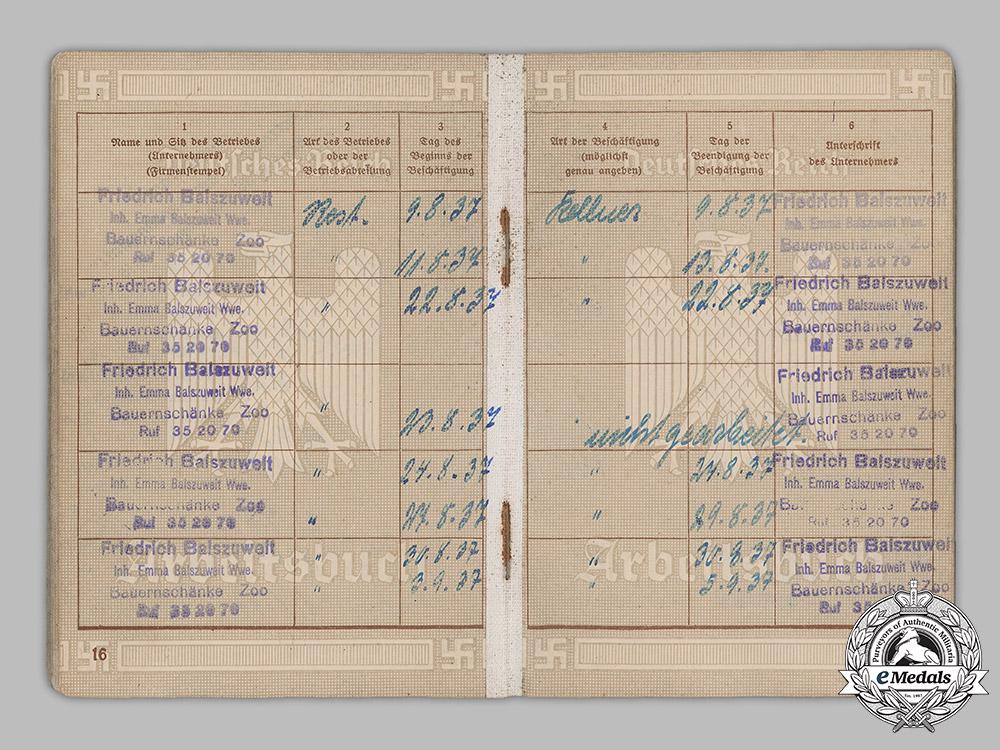 1 2 3 4 5 6
Name und Sitz des Betriebes
(Unternehmers)
(Firmenstempel)
Art des Betriebes
oder der
Betriebsabteilung
Tag des
Beginns der
Beschäftigung
Art der Beschäftigung
(möglichst
genau angeben)
Tag der
Beendigung der
Beschäftigung
Unterschrift
des Unternehmers
Deutsches Reich
Deutsches Reich
Friedrich Balszuweit Rest. 9.8.37 Kellner 9.8.37 Friedrich Balszuweit
Inh. Emma Balszuweit Wwe. Inh. Emma Balszuweit Wwe.
Bauernschänke Zoo Bauernschänke Zoo
Ruf 35 20 70 " 11.8.37 " 13.8.37. Ruf 35 20 70
Friedrich Balszuweit " 22.8.37 " 22.8.37 Friedrich Balszuweit
Inh. Emma Balszuweit Wwe. Inh. Emma Balszuweit Wwe.
Bauernschänke Zoo Bauernschänke Zoo
Ruf 35 20 70 Ruf 35 20 70
Friedrich Balszuweit Friedrich Balszuweit
Inh. Emma Balszuweit Wwe. Inh. Emma Balszuweit Wwe.
Bauernschänke Zoo " 23.8.37 " nicht gearbeitet. Bauernschänke Zoo
Ruf 35 20 70 Ruf 35 20 70
Friedrich Balszuweit " 24.8.37 " 24.8.37 Friedrich Balszuweit
Inh. Emma Balszuweit Wwe. Inh. Emma Balszuweit Wwe.
Bauernschänke Zoo " 27.8.37 " 29.8.37 Bauernschänke Zoo
Ruf 35 20 70 Ruf 35 20 70
Friedrich Balszuweit " 30.8.37 " 30.8.37 Friedrich Balszuweit
Inh. Emma Balszuweit Wwe. Inh. Emma Balszuweit Wwe.
Bauernschänke Zoo " 3.9.37 " 5.9.37 Bauernschänke Zoo
Ruf 35 20 70 Ruf 35
Arbeitsbuch
Arbeitsbuch
16
Purveyors of Authentic Militaria
eMedals
Est. 1967